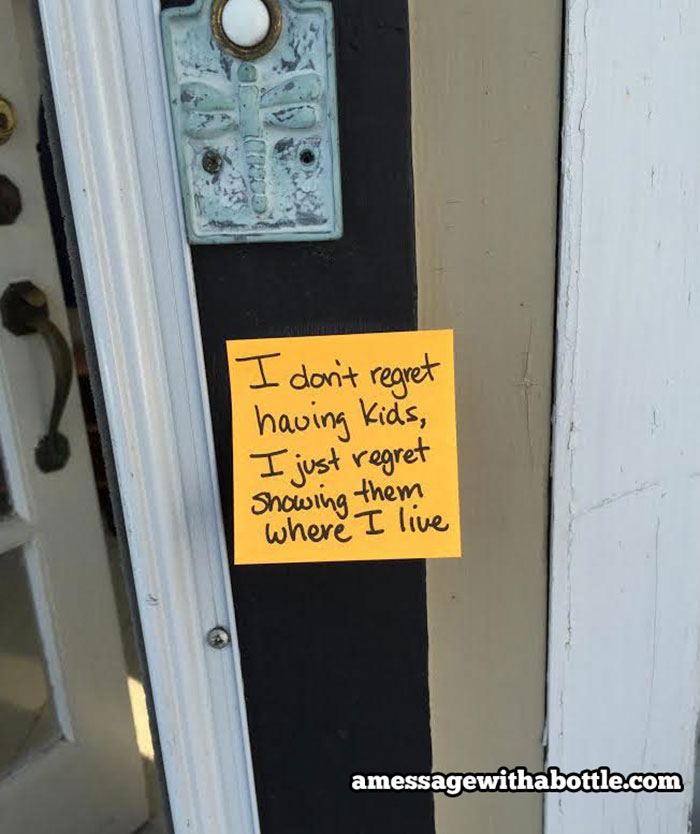 I don't regret
having kids,
I just regret
showing them
where I live
amessagewithabottle.com